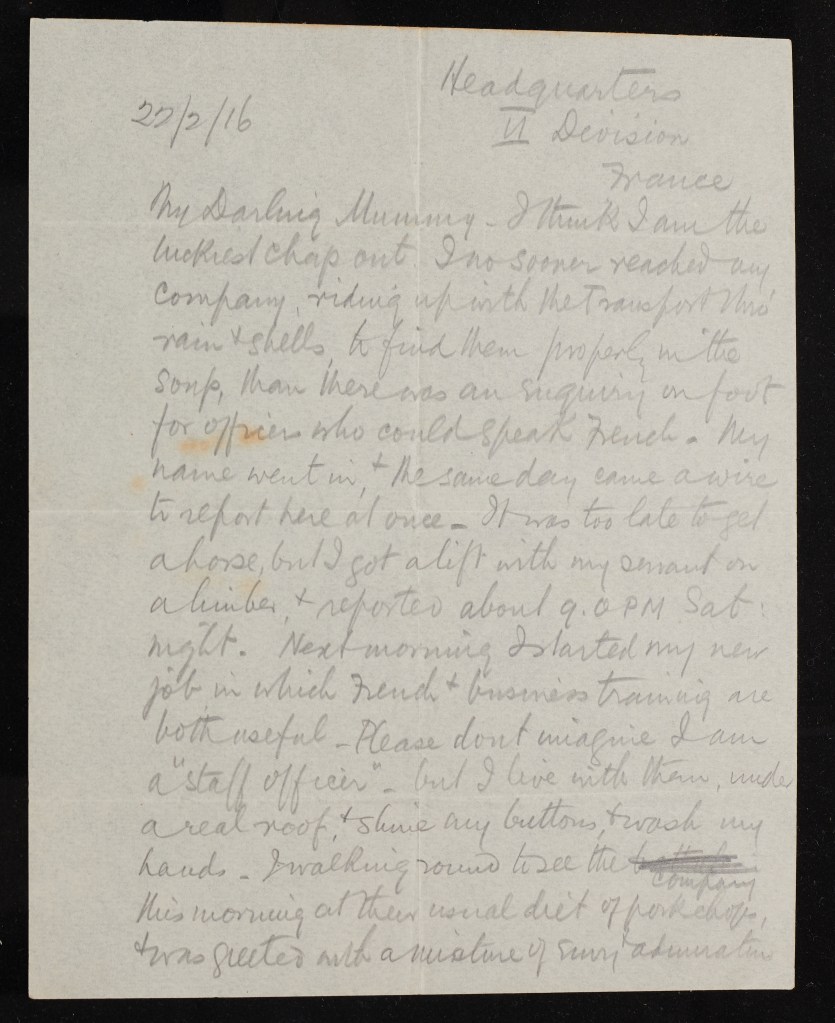 Headquarters
22/2/16
VI Division
France
My Darling Mummy - I think I am the
luckiest chap out I no sooner reached my
company, riding up with the transport thro'
rain + shells, to find them properly in the
soup, than there was an enquiry on foot
for officers who could speak French. My
name went in, + the same day came a wire
to report here at once - It was too late to get
a horse, but I got a lift with my servant on
a limber, + reported about 9.0 PM Sat:
night. Next morning I started my new
job in which French + business training are
both useful - Please dont imagine I am
a "staff officer" - but I live with them, under
a real roof, + shine my buttons, + wash my
hands - I walking round to see the
company
this morning at their usual diet of pork chops,
+ was greeted with a mixture of envy + admiration